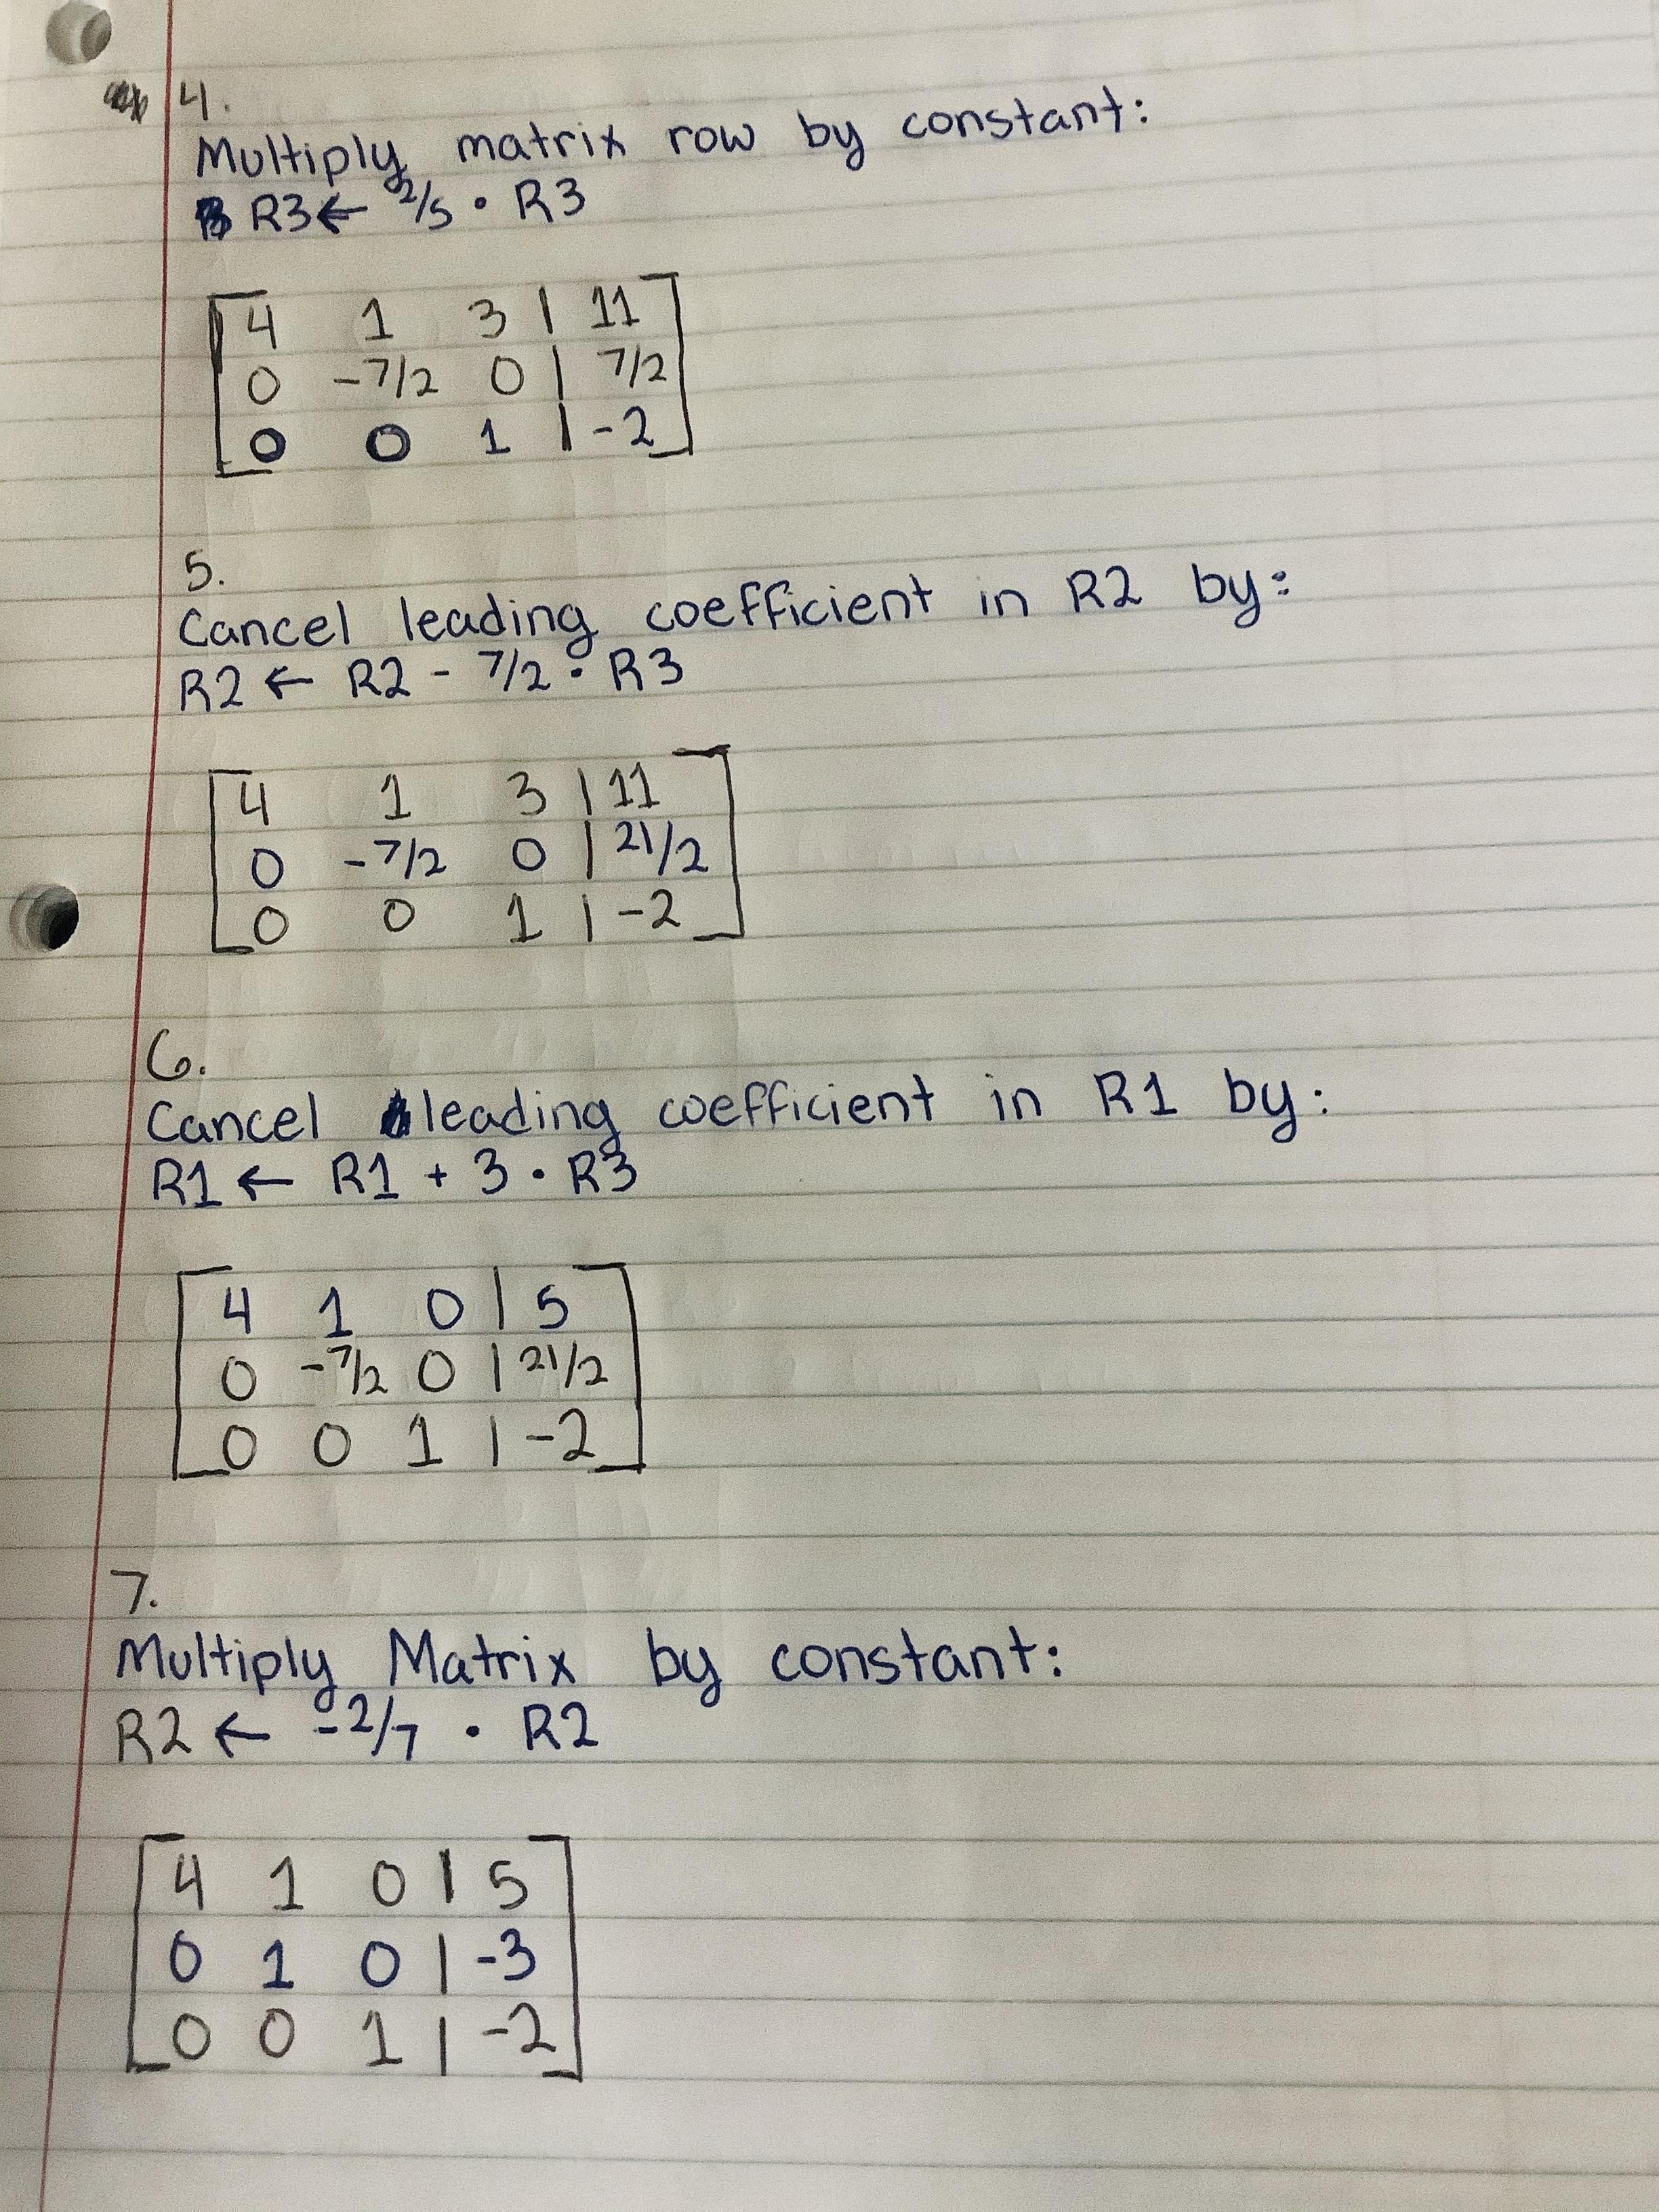 4.
Multiply matrix row by constant:
R3 ← 2/5 • R3
4 1 3 | 11
0 -7/2 0 | 7/2
0 0 1 | -2
5.
Cancel leading coefficient in R2 by:
R2 ← R2 - 7/2 • R3
4 1 3 | 11
0 -7/2 0 | 21/2
0 0 1 | -2
6.
Cancel leading coefficient in R1 by:
R1 ← R1 + 3 • R3
4 1 0 | 5
0 -7/2 0 | 21/2
0 0 1 | -2
7.
Multiply Matrix by constant:
R2 ← -2/7 • R2
4 1 0 | 5
0 1 0 | -3
0 0 1 | -2